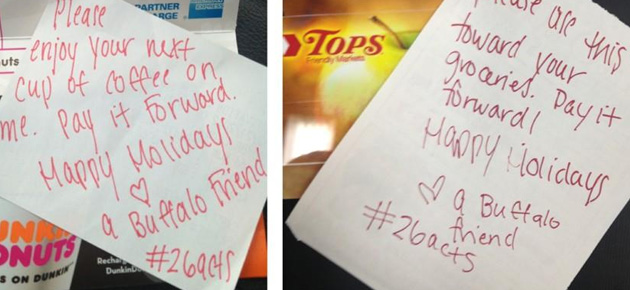 Please
enjoy your next
cup of coffee on
me. Pay it Forward.
Happy Holidays
♡
a Buffalo Friend
#26acts
PARTNER
AMERICAN EXPRESS
uts
UNKIN'
ONUTS
S ON DUNKIN'
Recharg
DunkinD
TOPS
Friendly Markets
Please use this
toward your
groceries. Pay it
forward!
Happy Holidays
♡ a Buffalo
friend
#26acts